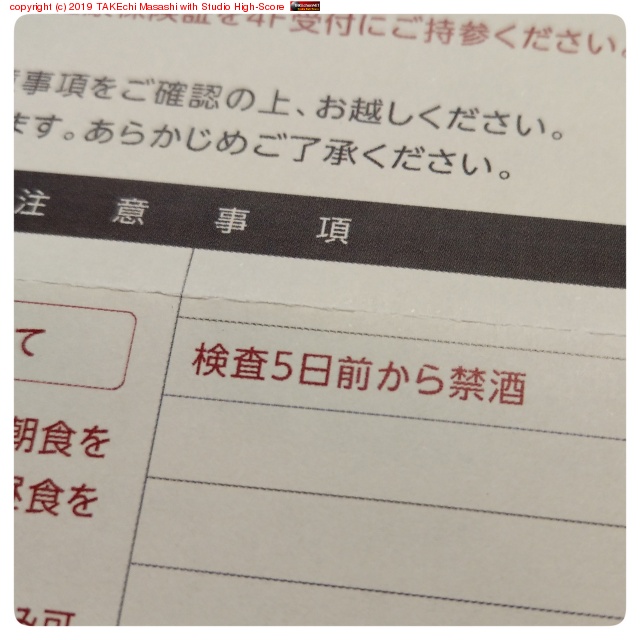 copyright (c) 2019 TAKEchi Masashi with Studio High-Score
保険証を4F受付にご持参ください。
事項をご確認の上、お越しください。
ます。あらかじめご了承ください。
注意事項
て
検査5日前から禁酒
朝食を
昼食を
み可